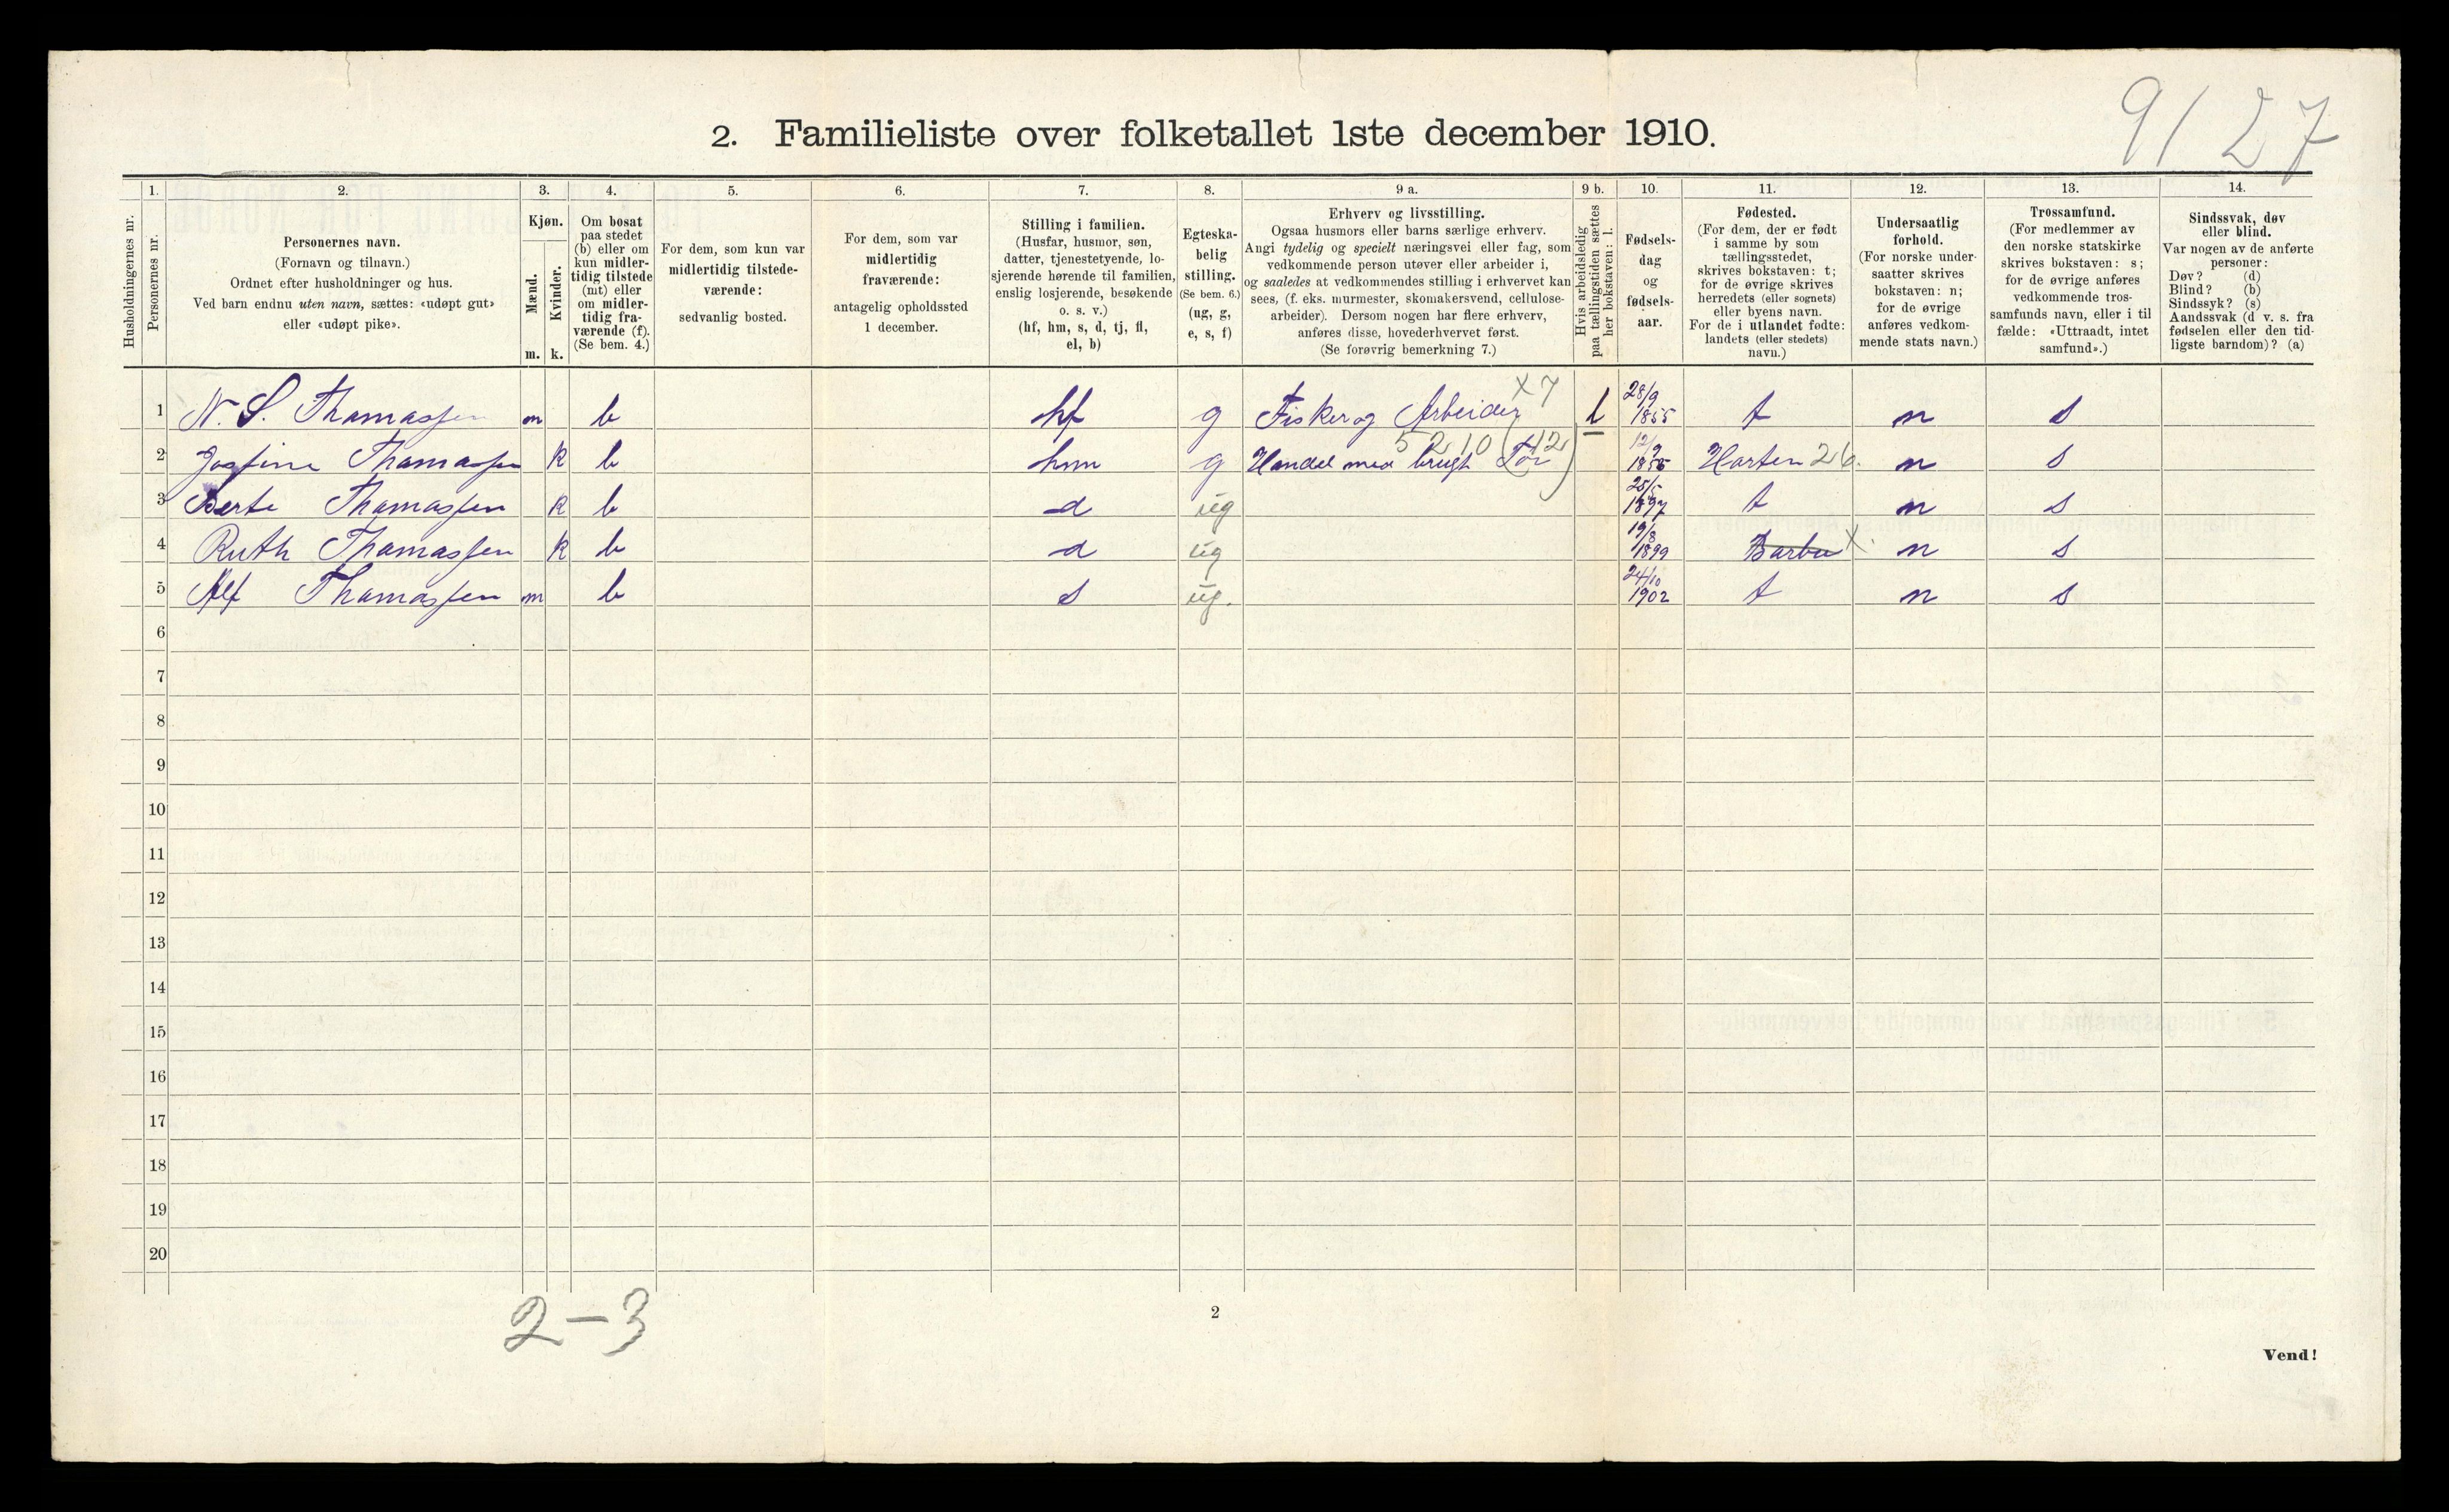 9/27
2. Familieliste over folketallet 1ste december 1910.
Husholdningernes nr.
1.
Personernes nr.
2.
Personernes navn.
(Fornavn og tilnavn.)
Ordnet efter husholdninger og hus.
Ved barn endnu uten navn, sættes: «udøpt gut»
eller «udøpt pike».
3.
Kjøn.
Mænd. Kvinder.
m. k.
4.
Om bosat
paa stedet
(b) eller om
kun midler-
tidig tilstede
(mt) eller
om midler-
tidig fra-
værende (f).
(Se bem. 4.)
5.
For dem, som kun var
midlertidig tilstede-
værende:
sedvanlig bosted.
6.
For dem, som var
midlertidig
fraværende:
antagelig opholdssted
1 december.
7.
Stilling i familien.
(Husfar, husmor, søn,
datter, tjenestetyende, lo-
sjerende hørende til familien,
enslig losjerende, besøkende
o. s. v.)
(hf, hm, s, d, tj, fl,
el, b)
8.
Egteska-
belig
stilling.
(Se bem. 6.)
(ug, g,
e, s, f)
9 a.
Erhverv og livsstilling.
Ogsaa husmors eller barns særlige erhverv.
Angi tydelig og specielt næringsvei eller fag, som
vedkommende person utøver eller arbeider i,
og saaledes at vedkommendes stilling i erhvervet kan
sees, (f. eks. murmester, skomakersvend, cellulose-
arbeider). Dersom nogen har flere erhverv,
anføres disse, hovederhvervet først.
(Se forøvrig bemerkning 7.)
9 b.
Hvis arbeidsledig
paa tællingstiden sættes
her bokstaven: l.
10.
Fødsels-
dag
og
fødsels-
aar.
11.
Fødested.
(For dem, der er født
i samme by som
tællingsstedet,
skrives bokstaven: t;
for de øvrige skrives
herredets (eller sognets)
eller byens navn.
For de i utlandet fødte:
landets (eller stedets)
navn.)
12.
Undersaatlig
forhold.
(For norske under-
saatter skrives
bokstaven: n;
for de øvrige
anføres vedkom-
mende stats navn.)
13.
Trossamfund.
(For medlemmer av
den norske statskirke
skrives bokstaven: s;
for de øvrige anføres
vedkommende tros-
samfunds navn, eller i til
fælde: «Uttraadt, intet
samfund».)
14.
Sindssvak, døv
eller blind.
Var nogen av de anførte
personer:
Døv? (d)
Blind? (b)
Sindssyk? (s)
Aandssvak (d v. s. fra
fødselen eller den tid-
ligste barndom)? (a)
1 N. S. Thomassen m b hf g Fisker og Arbeider x7 l 28/9 1855 t n s
2 Josfine Thomassen k b hm g Handel med brugt 5210 12/9 Harten 26. n s
3 Berte Thomassen k b d ug 25/5 1897 t n s
4 Ruth Thomassen k b d ug 19/8 1899 Barbu x n s
5 Alf Thomassen m b s ug. 24/10 1902 t n s
6
7
8
9
10
11
12
13
14
15
16
17
18
19
20
2-3
2
Vend!